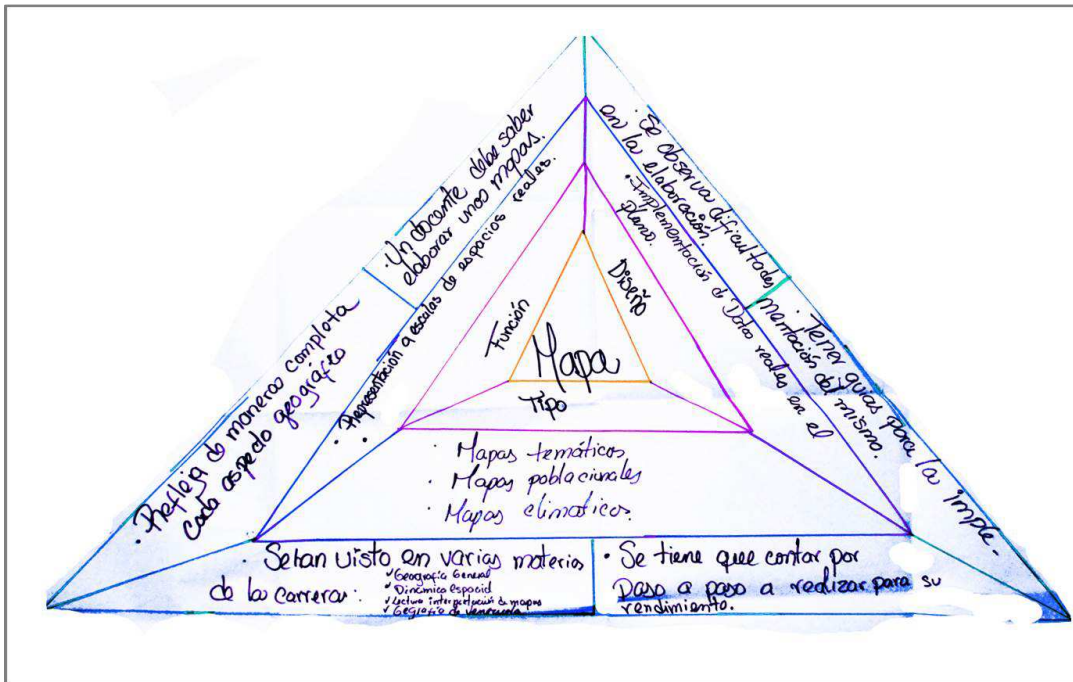 Mapa
Función
Diseño
Tipo
· Representación a escalas de espacios reales.
·
· Implementación d Datos reales en el
plano.
· Mapas temáticos
· Mapas poblacionales
· Mapas climaticos.
· Un docente debe saber
elaborar unos mapas.
· Refleja de maneras complota
cada aspecto geográfico
· Se observa dificultades
en la elaboración.
· Tener guias para la imple-
mentación del mismo.
· Setan visto en varias materias
de las carreras:
✓ Geografía General
✓ Dinámica espacial
✓ Lectura interpretación d mapas
✓ Geografía de Venezuela.
· Se tiene que contar por
Paso a paso a realizar para su
rendimiento.